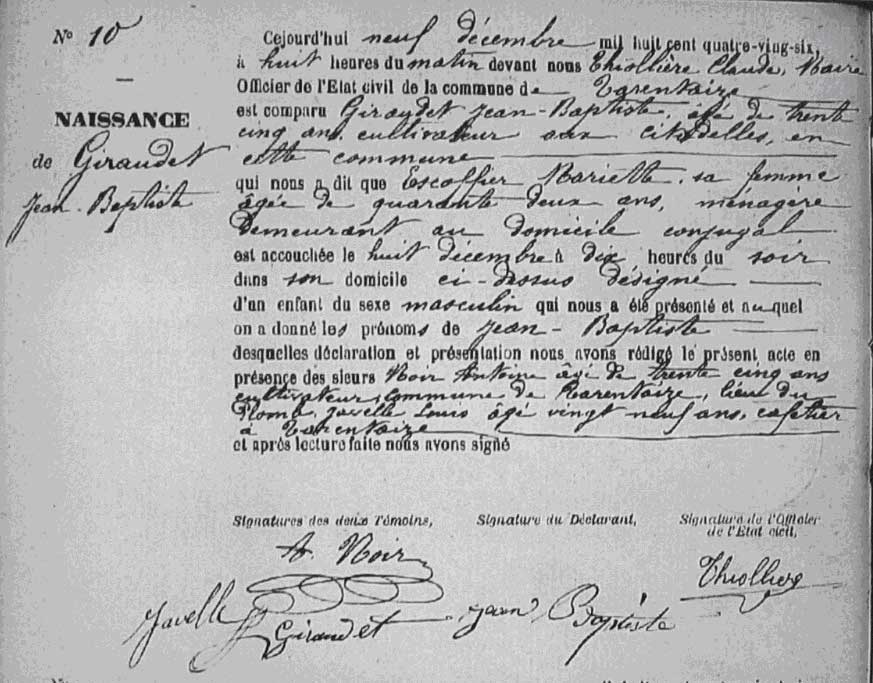 N° 10
NAISSANCE
de Giraudet
Jean-Baptiste
Cejourd'hui neuf décembre mil huit cent quatre-ving-six,
à huit heures du matin devant nous Thiollière Claude, Maire
Officier de l'Etat civil de la commune de Tarentaize
est comparu Giraudet Jean-Baptiste, âgé de trente
cinq ans, cultivateur aux citadelles, en
cette commune
qui nous a dit que Escoffier Mariette, sa femme
âgée de quarante deux ans, ménagère
demeurant au domicile conjugal
est accouchée le huit décembre à dix heures du soir
dans son domicile ci-dessus désigné
d'un enfant du sexe masculin qui nous a été présenté et auquel
on a donné les prénoms de Jean-Baptiste
desquelles déclaration et présentation nous avons rédigé le présent acte en
présence des sieurs Noir Antoine âgé de trente cinq ans
cultivateur, commune de Tarentaize, lieu du
Plomb, Javelle Louis âgé vingt neuf ans, cafetier
à Tarentaize
et après lecture faite nous avons signé
Signatures des deux Témoins,
Signature du Déclarant,
Signature de l'Officier
de l'Etat civil,
A. Noir
Thiolliere
Javelle
Giraudet Jean Baptiste